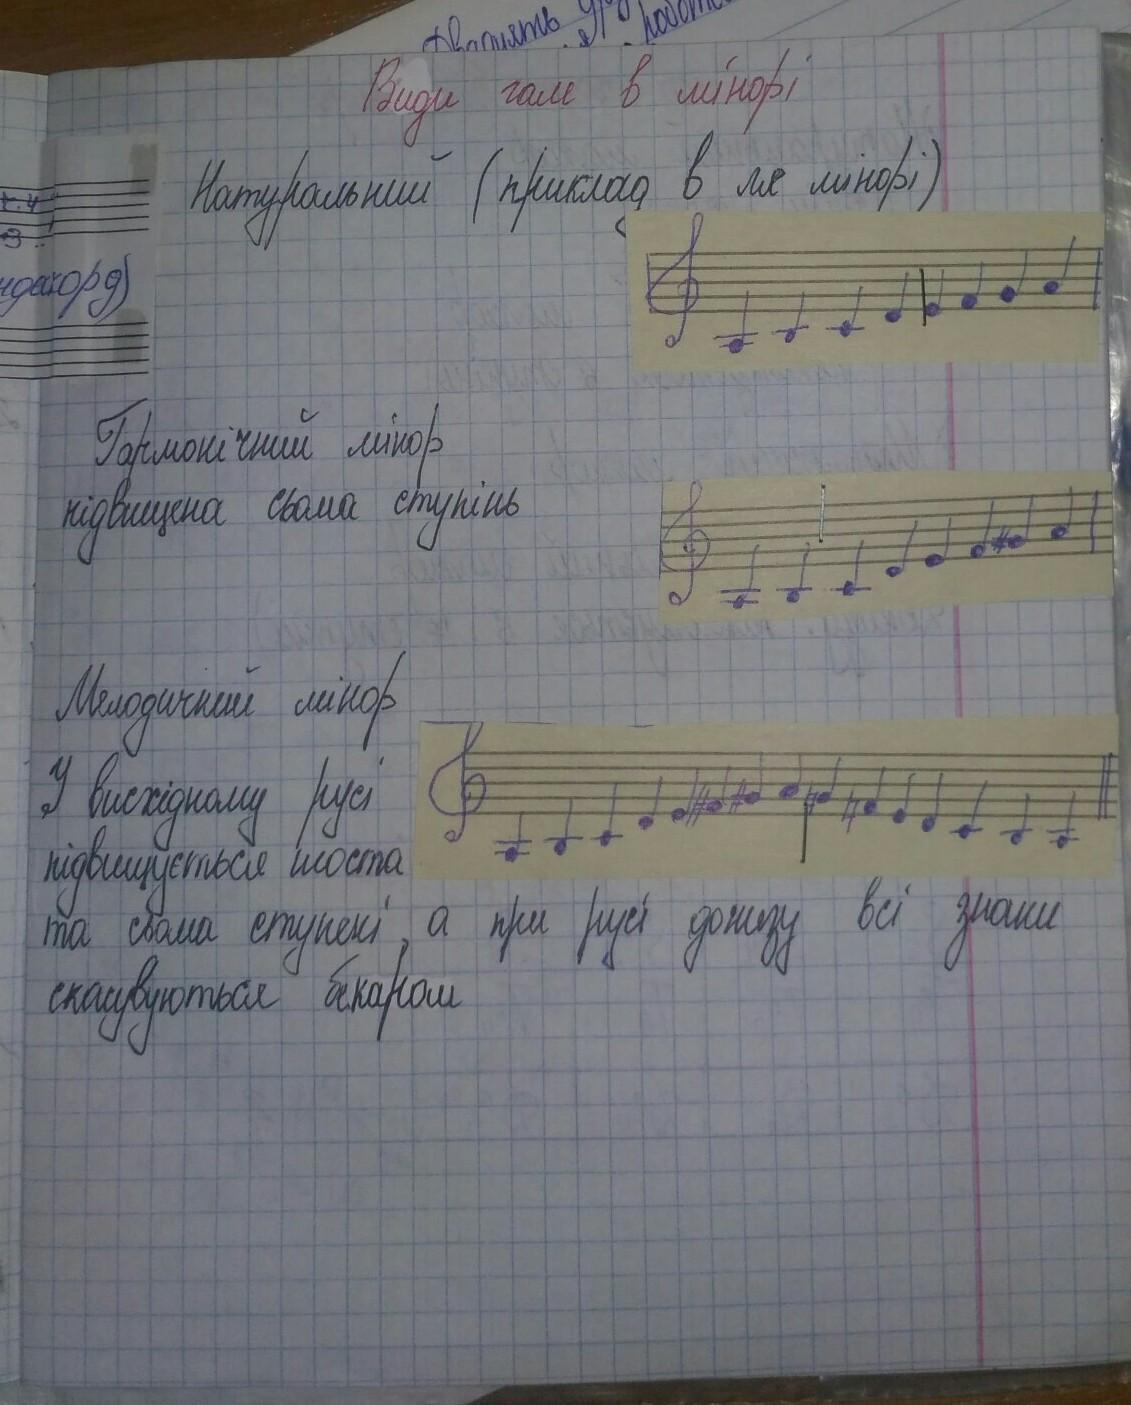 Двадцять дру
робота
Види гам в мінорі
Натуральний (приклад в ля мінорі)
Гармонічний мінор
підвищена сьома ступінь
Мелодичний мінор
У висхідному русі
підвищується шоста
та сьома ступені, а при русі донизу всі знаки
скасувуються бекаром